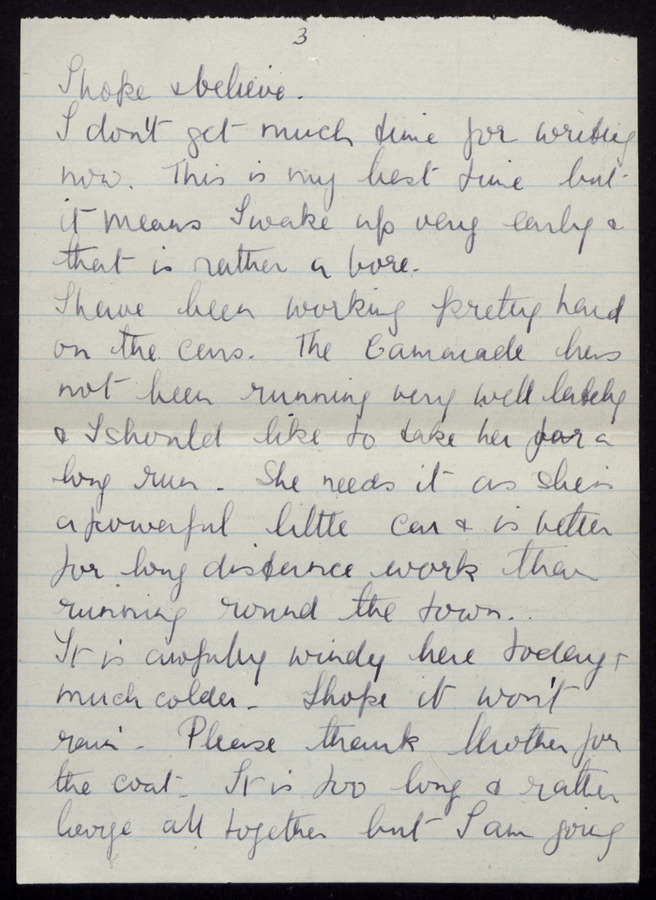 3
I hope & believe.
I don't get much time for writing
now. This is my best time but
it means I wake up very early &
that is rather a bore.
I have been working pretty hard
on the cars. The Camarade has
not been running very well lately
& I should like to take her for a
long run. She needs it as she is
a powerful little car & is better
for long distance work than
running round the town..
It is awfully windy here today &
much colder. I hope it won't
rain. Please thank Mother for
the coat. It is too long & rather
large all together but I am going